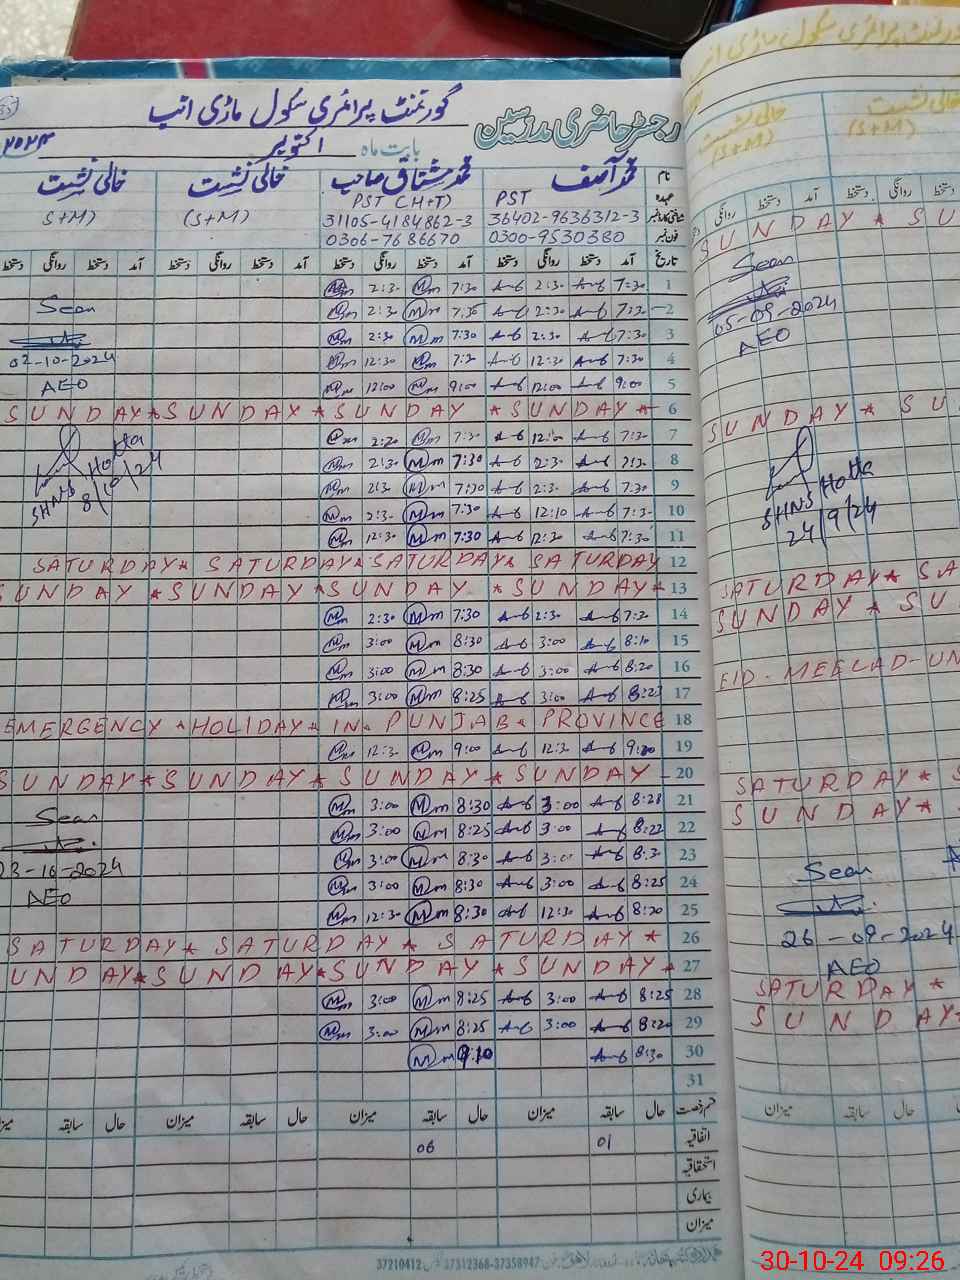 گورنمنٹ پرائمری سکول ماڑی انب
رجسٹر حاضری مدرسین
بابت ماہ اکتوبر ۲۰۲۴
نام محمد آصف محمد مشتاق صاحب خالی نشست خالی نشست
عہدہ PST PST (H+T) (S+M) (S+M)
36402-9636312-3 31105-4184862-3
فون نمبر 0300-9530380 0306-7686670
تاریخ آمد دستخط روانگی دستخط آمد دستخط روانگی دستخط آمد دستخط روانگی دستخط آمد دستخط روانگی دستخط
1 7:30 2:30 7:30 2:30
2 7:30 2:30 2:30
3 7:30 2:30 7:30 2:30
4 7:30 12:30 7:30 12:30
5 9:00 12:00 9:00 12:00
Seen
02-10-2024
AEO
6 SUNDAY * SUNDAY * SUNDAY * SUNDAY *
7 7:30
8 7:30 2:30 7:30 2:30
9 7:30 2:30 7:30 2:30
10 7:30 12:10 7:30 2:30
11 7:30 12:30 7:30 12:30
SHNS Hotta
8/10/24
12 SATURDAY * SATURDAY * SATURDAY * SATURDAY
13 SUNDAY * SUNDAY * SUNDAY * SUNDAY *
14 7:30 2:30 7:30 2:30
15 8:10 3:00 8:30 3:00
16 8:20 3:00 8:30 3:00
17 3:00 8:25 3:00
18 EMERGENCY * HOLIDAY * IN * PUNJAB * PROVINCE
19 12:30 9:00 12:30
20 SUNDAY * SUNDAY * SUNDAY * SUNDAY
21 8:28 3:00 8:30 3:00
22 8:22 3:00 8:25 3:00
23 8:30 3:00 8:30 3:00
24 8:25 3:00 8:30 3:00
25 8:20 12:30 8:30 12:30
Seen
23-10-2024
AEO
26 SATURDAY * SATURDAY * SATURDAY *
27 SUNDAY * SUNDAY * SUNDAY * SUNDAY *
28 8:25 3:00 8:25 3:00
29 8:20 3:00 8:25 3:00
30 8:30 9:10
31
قسم رخصت حال سابقہ میزان حال سابقہ میزان حال سابقہ میزان حال سابقہ میزان
اتفاقیہ 01 06
استحقاقیہ
بیماری
میزان
37210412 37312368-37358947
خالی نشست
(S+M)
خالی نشست
(S+M)
SUNDAY * SU
Seen
05-09-2024
AEO
SUNDAY * SU
SHNS Hotta
24/9/24
SATURDAY * SA
SUNDAY * SU
EID-MEELAD-UN
SATURDAY *
SUNDAY *
Seen
26-09-2024
AEO
SATURDAY *
SUNDAY *
میزان سابقہ حال
30-10-24 09:26